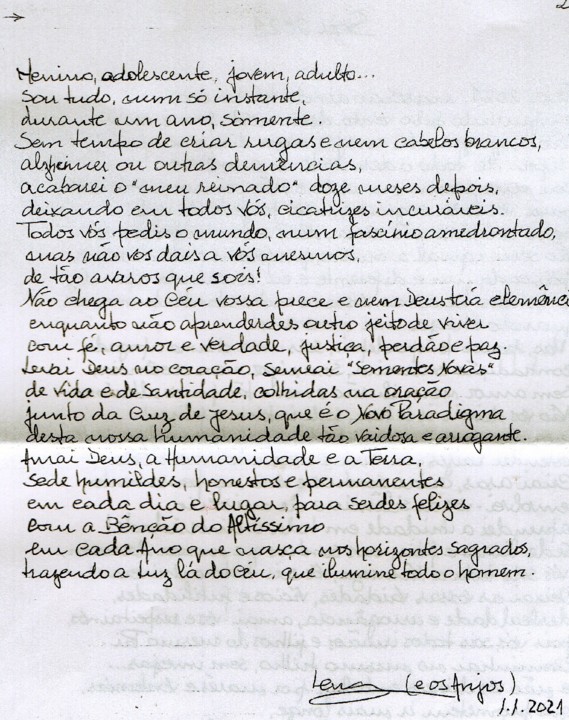 →
2
Menino, adolescente, jovem, adulto...
Sou tudo, num só instante,
durante um ano, sòmente.
Sem tempo de criar rugas e nem cabelos brancos,
alzheimer ou outras demências,
acabarei o "meu reinado" doze meses depois,
deixando em todos vós, cicatrizes incuráveis.
Todos vós pedis o mundo, num fascínio amedrontado,
mas não vos dais a vós mesmos,
de tão avaros que sois!
Não chega ao Céu vossa prece e nem Deus
enquanto não aprenderdes outro jeito de viver
com fé, amor e verdade, justiça, perdão e paz.
Levai Deus no coração, Semeai "Sementes Novas"
de Vida e de Santidade, colhidas na oração
junto da Cruz de Jesus, que é o Novo Paradigma
desta nossa humanidade tão vaidosa e arrogante.
Amai Deus, a Humanidade e a Terra,
Sede humildes, honestos e permanentes
em cada dia e lugar, para serdes felizes
com a Bênção do Altíssimo
em cada Ano que nasça nos horizontes Sagrados,
trazendo a Luz lá do Céu, que ilumine todo o homem.
(e os Anjos)
1.1.2021